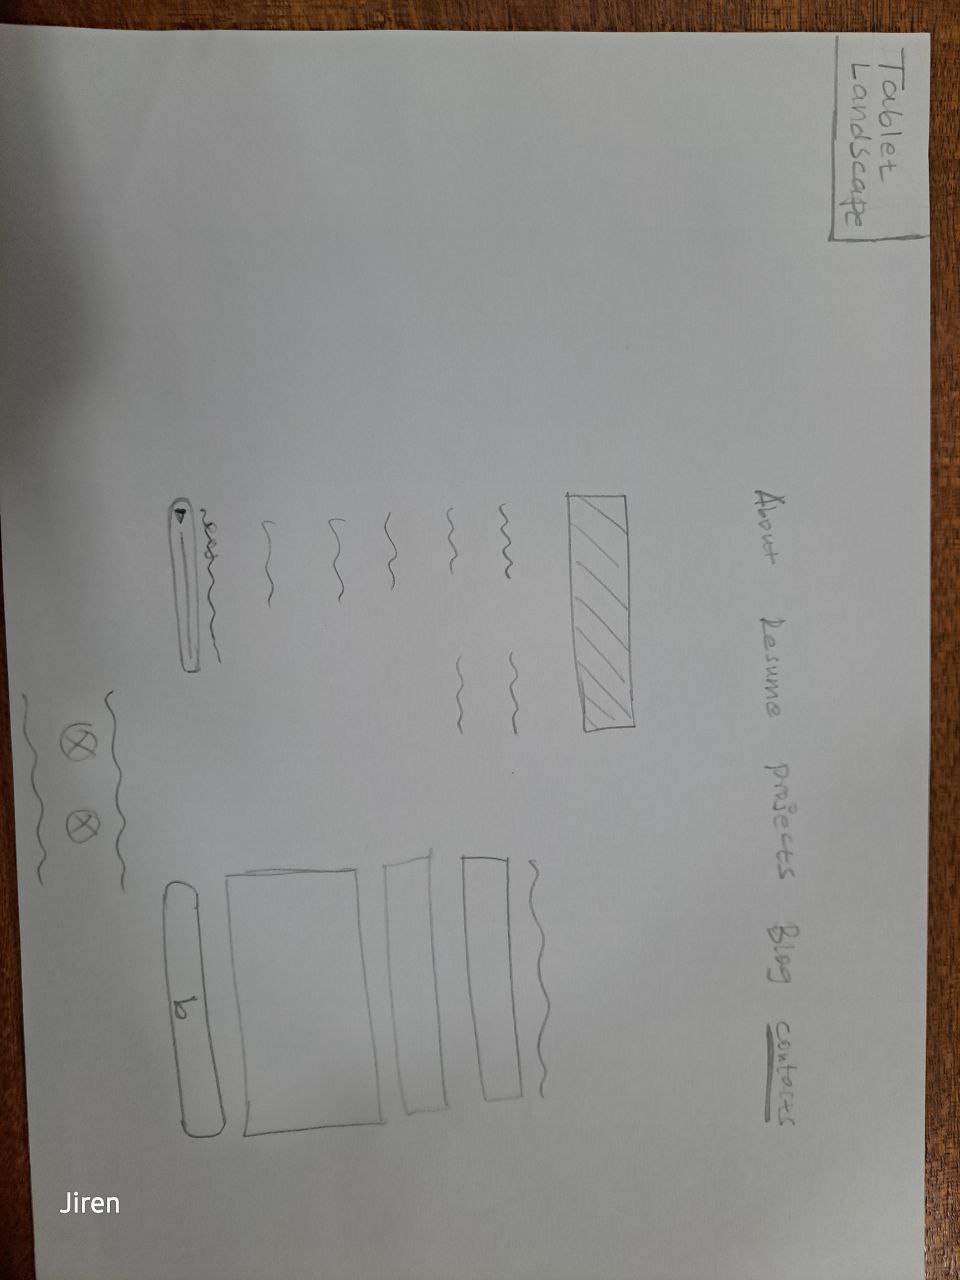 Tablet
Landscape
About Resume projects Blog contacts
b
Jiren